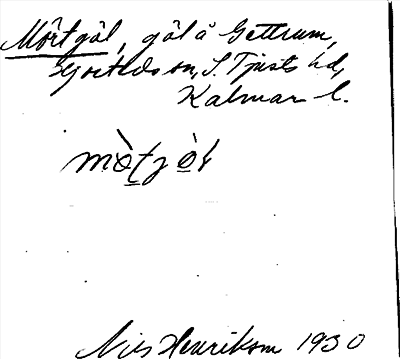 Mörtgöl, göl å Gettrum,
Gjorteds sn, S. Tjusts hd,
Kalmar l.
mò̱ʈjö̱̀l
Nils Henrikson 1930